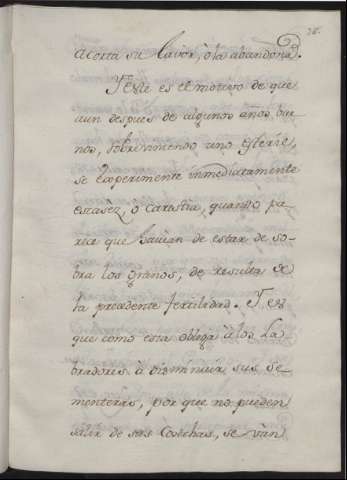 acorta su lavor, ò la abandona.
Y este es el motivo de que
aun despues de algunos años bue-
nos, sobreviniendo uno esteril,
se experimente inmediatamente
escasèz, o carestia, quando pa-
rece que havian de estar de so-
bra los granos, de resulta de
la precedente fertilidad. Y es
que como esta obliga à los La-
bradores à disminuir sus Se-
menteras, por que no pueden
salir de sus Cosechas, se van